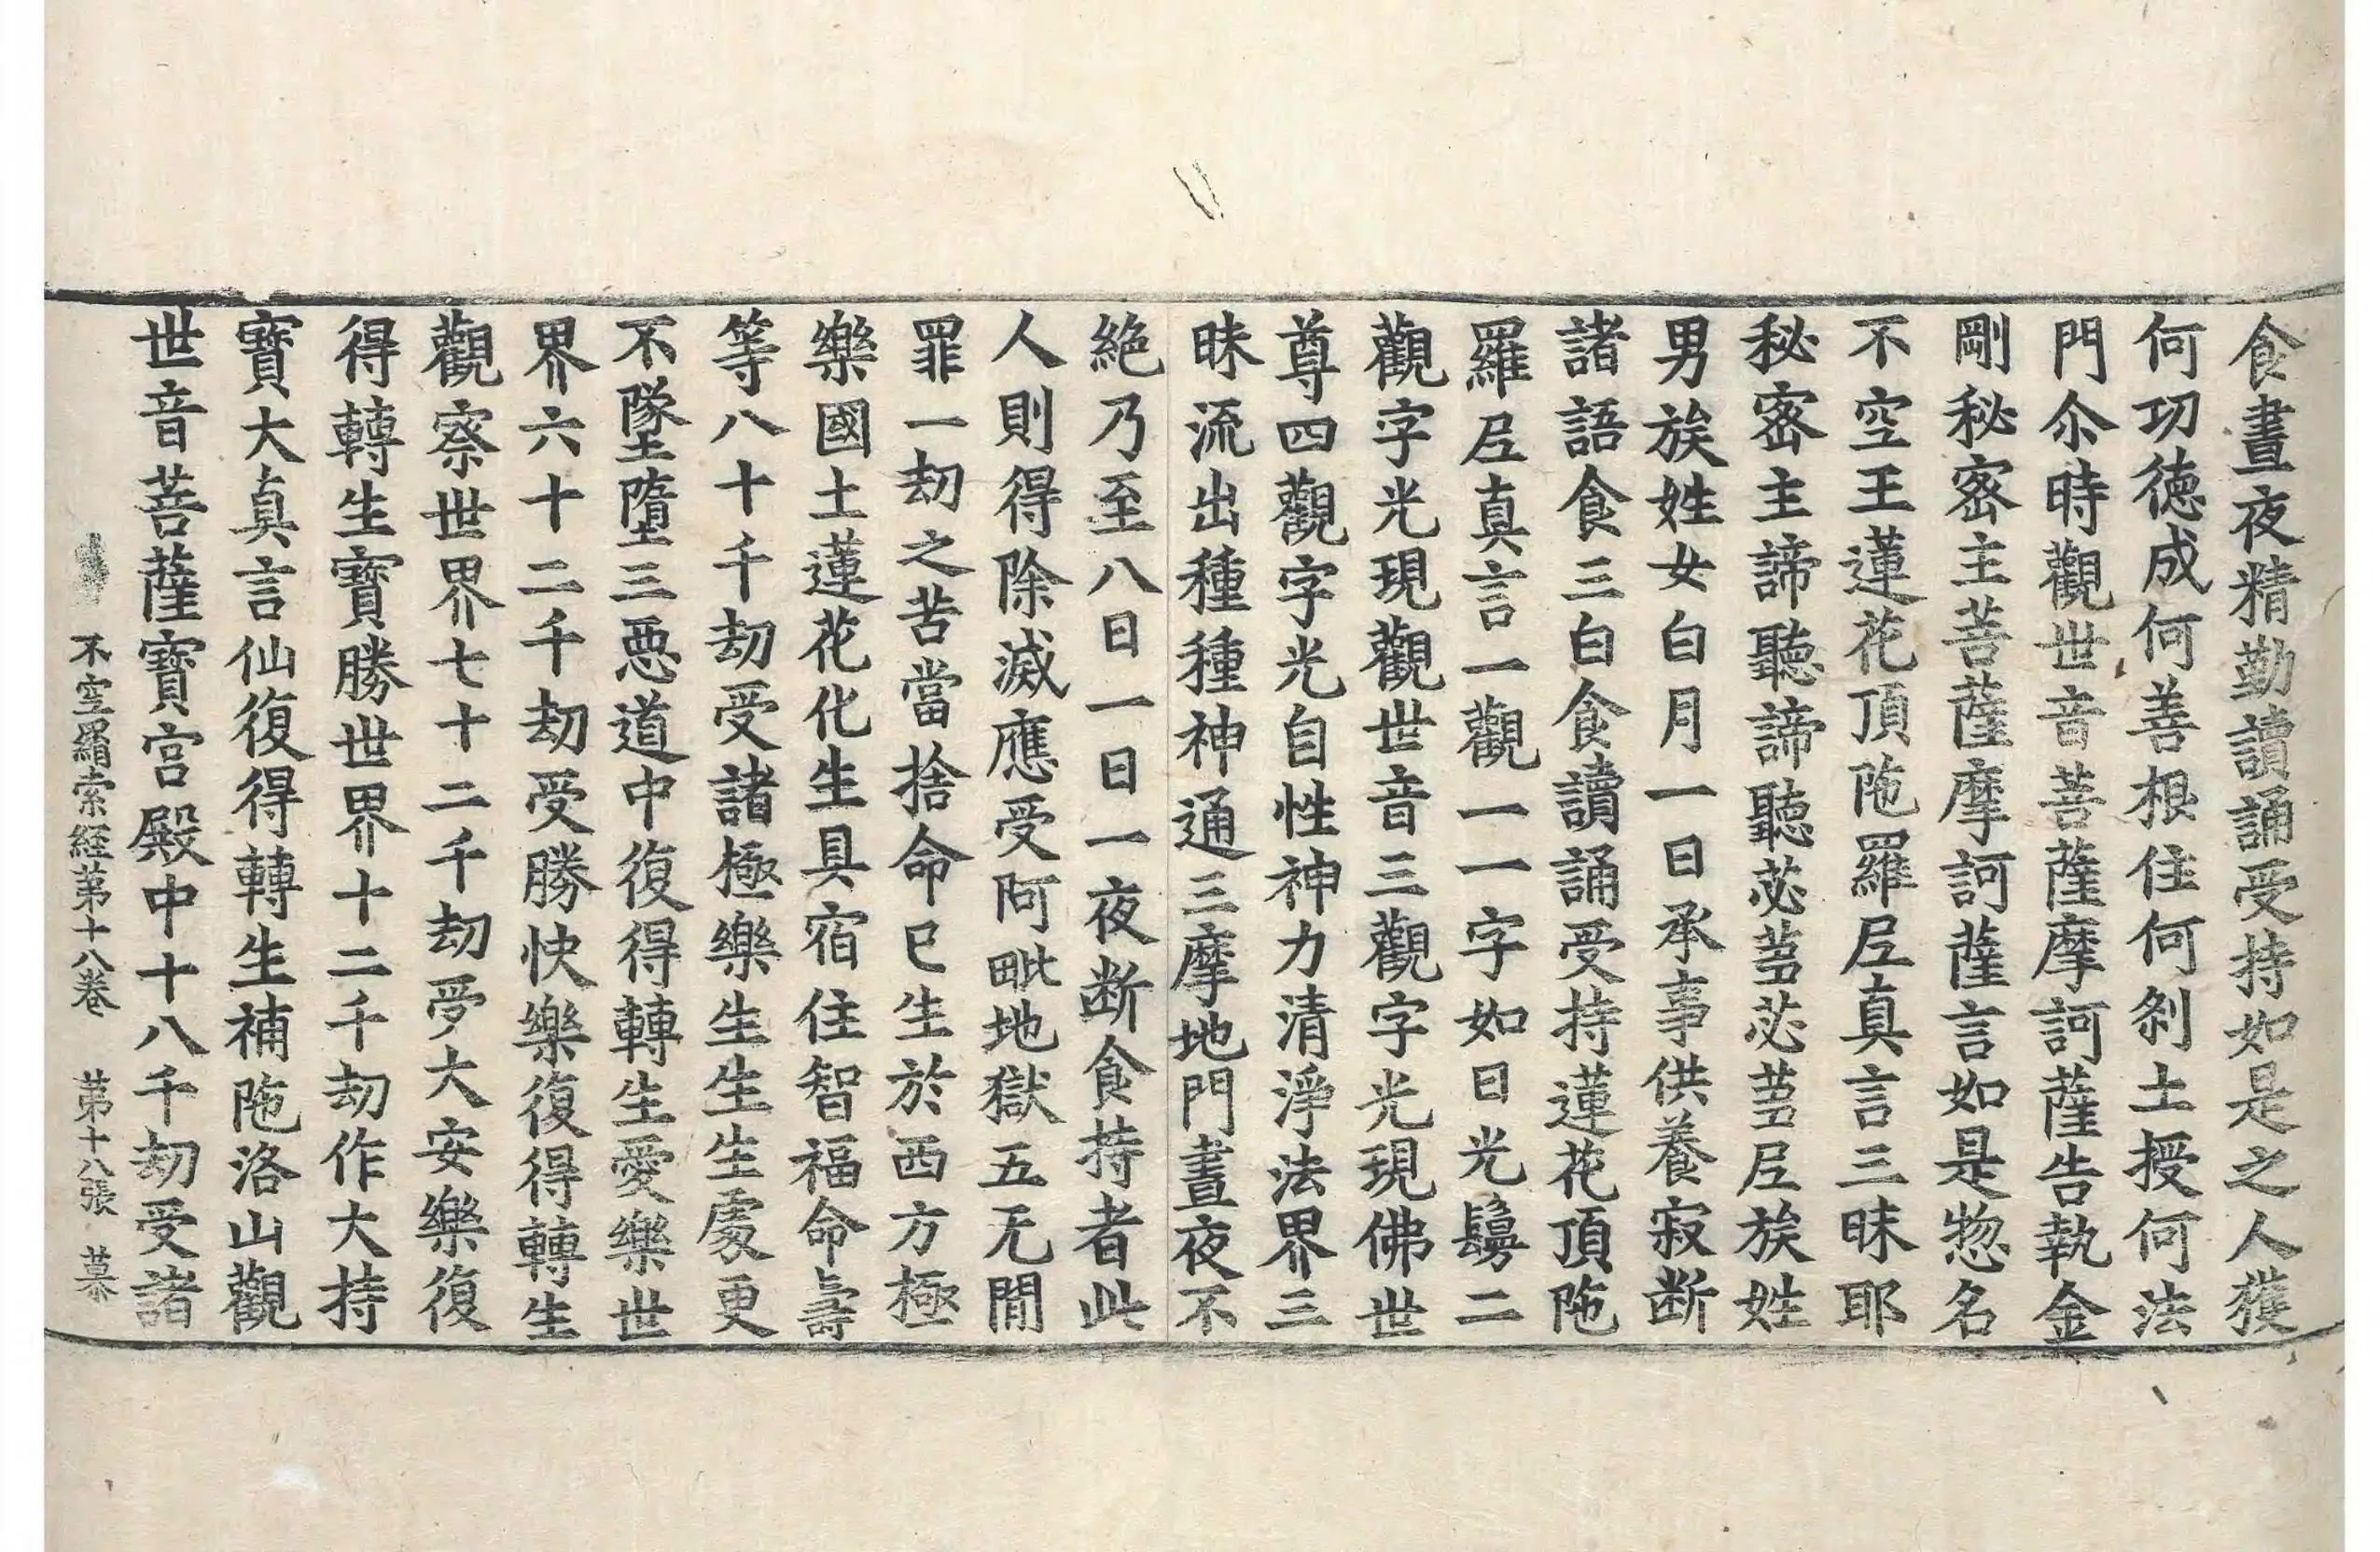 食晝夜精勤讀誦受持如是之人獲
何功德成何善根住何刹土授何法
門尒時觀世音菩薩摩訶薩告執金
剛秘密主菩薩摩訶薩言如是惣名
不空王蓮花頂陁羅𡰱真言三昧耶
秘密主諦聽諦聽苾蒭苾蒭𡰱族姓
男族姓女白月一日承事供養寂断
諸語食三白食讀誦受持蓮花頂陁
羅𡰱真言一觀一一字如日光鬘二
觀字光現觀世音三觀字光現佛世
尊四觀字光自性神力清淨法界三
昧流出種種神通三摩地門晝夜不
絶乃至八日一日一夜断食持者此
人則得除滅應受阿毗地獄五无間
罪一劫之苦當捨命已生於西方極
樂國土蓮花化生具宿住智福命壽
等八十千劫受諸極樂生生生處更
不墜墮三惡道中復得轉生愛樂世
界六十二千劫受勝快樂復得轉生
觀察世界七十二千劫受大安樂復
得轉生寶勝世界十二千劫作大持
寶大真言仙復得轉生補陁洛山觀
世音菩薩寶宮殿中十八千劫受諸
不空羂索經第十八卷 第十八張 慕